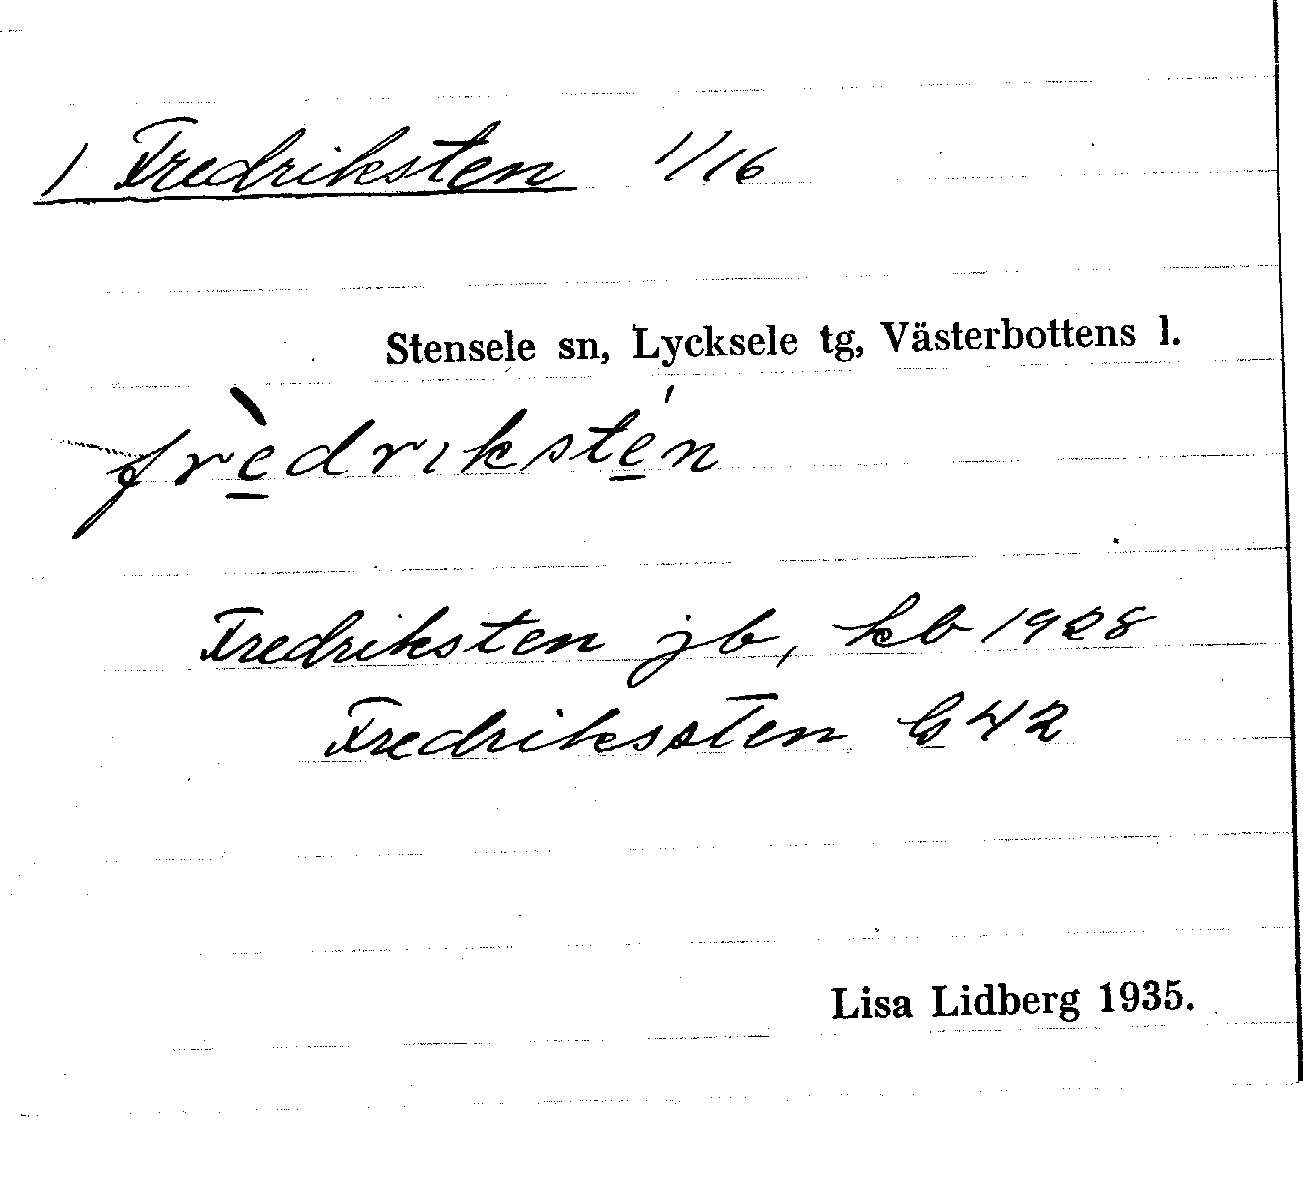 1 Fredriksten 1/16
Stensele sn, Lycksele tg, Västerbottens l.
frèdrikstén
Fredriksten jb, kb 1928
Fredrikssten G42
Lisa Lidberg 1935.